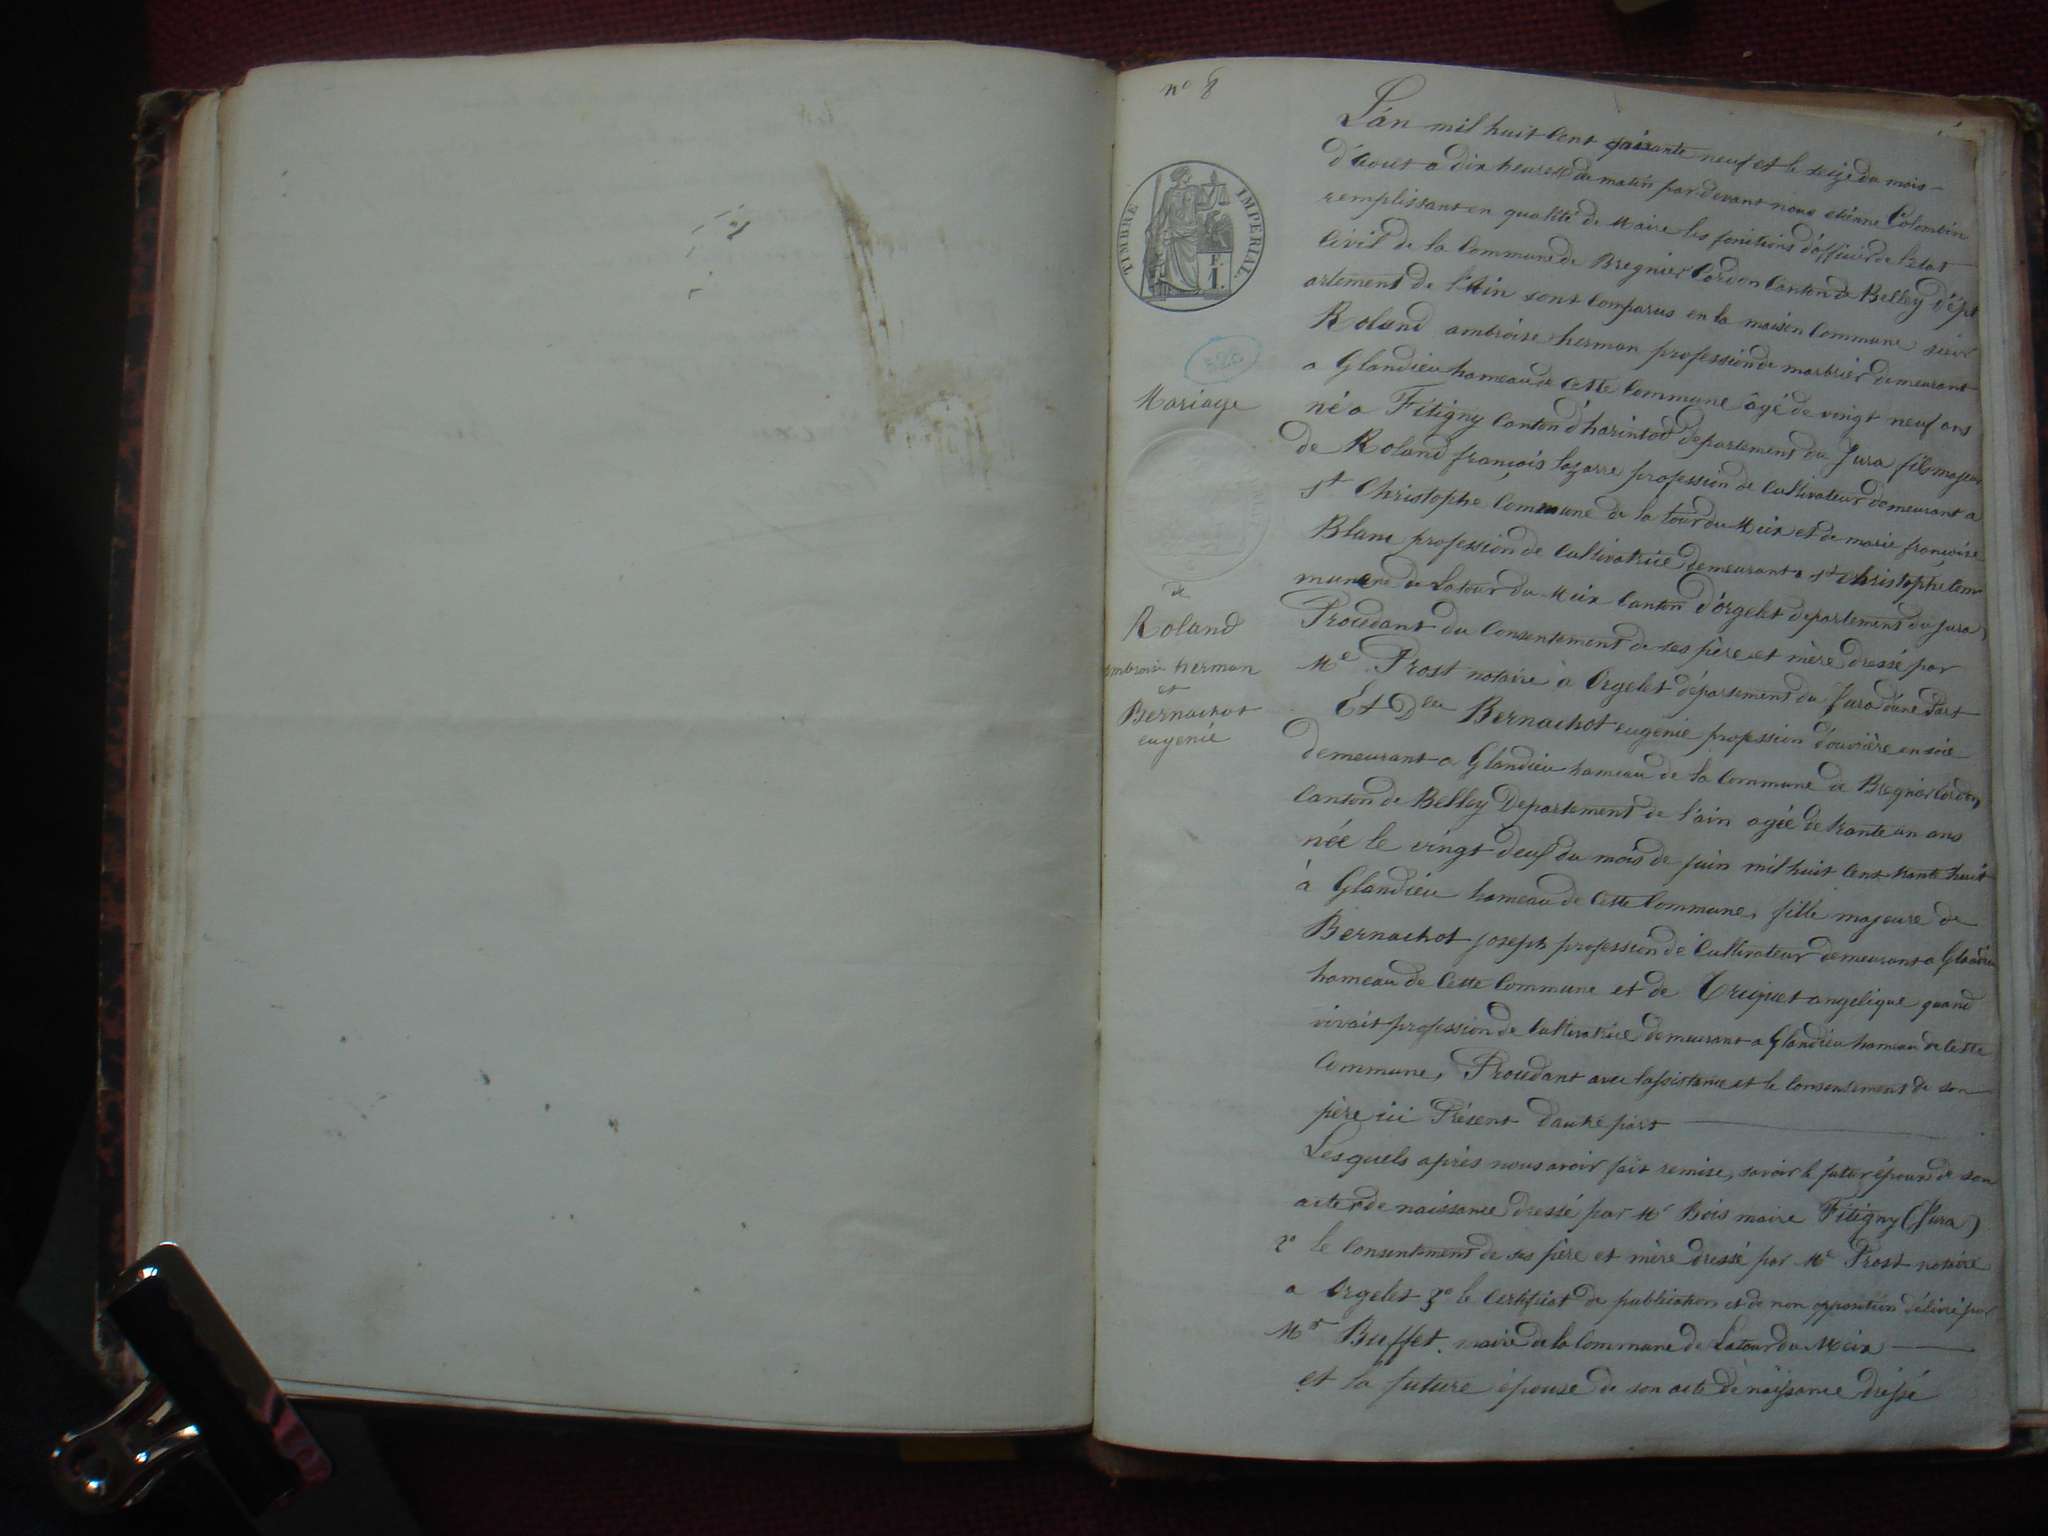 nº 8
TIMBRE IMPERIAL
F.
1.
526
Mariage
de
Roland
ambroise herman
et
Bernachot
eugenie
L'an mil huit Cent soixante neuf et le seize du mois
d'aout a dix heures du matin par devant nous etienne Colombin
remplissant en qualité de Maire les fonctions d'officier de l'état
Civil de la Commune de Bregnier Cordon Canton de Belley Dép
artement de l'Ain sont Comparus en la maison Commune sieur
Roland ambroise herman profession de marbrier demeurant
a Glandieu hameau de Cette Commune âgé de vingt neuf ans
né a Fétigny Canton d'harintod departement du Jura fils majeur
de Roland françois lazarre profession de Cultivateur demeurant a
St Christophe Commune de la tour du Meix et de marie françoise
Blanc profession de Cultivatrice demeurant a St Christophe Com
mune de Latour du Meix Canton d'orgelet departement du jura,
Procedant du Consentement de ses père et mère dressé par
Me Prost notaire à Orgelet département du Jura d'une Part
Et Dlle Bernachot eugenie profession d'ouvrière en soie
demeurant a Glandieu hameau de la Commune de Bregnier Cordon
Canton de Belley Departement de l'ain agée de trante un ans
née le vingt deux du mois de juin mil huit Cent trante huit
à Glandieu hameau de Cette Commune, fille majeure de
Bernachot joseph profession de Cultivateur demeurant a Glandieu
hameau de Cette Commune et de Triquet angelique quand
vivait profession de Cultivatrice demeurant a Glandieu hameau de Cette
Commune, Procedant avec l'assistance et le Consentement de son
père ici Présent d'autre part
Lesquels après nous avoir fait remise, savoir le futur époux de son
acte de naissance dressé par Mr Bois maire Fétigny (Jura)
2º le Consentement de ses père et mère dressé par Me Prost notaire
a Orgelet 3º le Certificat de publication et de non opposition délivré par
Mr Buffet. maire de la Commune de Latour du Meix
et la future épouse de son acte de naissance dressé